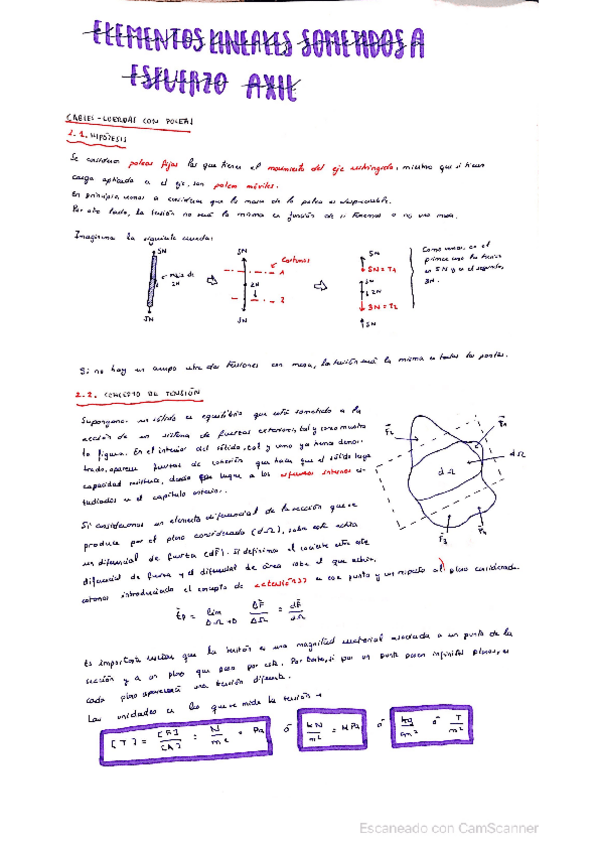 ELEMENTOS LINEALES SOMETIDOS A
ESFUERZO AXIL
CABLES - CUERDAS CON POLEAS
2.1. HIPÓTESIS
Se consideran poleas fijas las que tienen el movimiento del eje restringido, mientras que si tienen
carga aplicada en el eje, son poleas móviles.
En principio, vamos a considerar que la masa de la polea es despreciable.
Por otro lado, la tensión no será la misma en función de si tenemos o no una masa.
Imaginemos la siguiente cuerda:
5N
masa de
2N
3N
5N
Cortamos
1
2N
2
3N
5N
5N = T1
5N
2N
3N = T2
3N
Como vemos, en el
primer caso la tensión
es 5N y en el segundo,
3N.
Si no hay un cuerpo entre dos tensiones con masa, la tensión será la misma en todos los puntos.
2.2. CONCEPTO DE TENSIÓN
Supongamos un sólido en equilibrio que está sometido a la
acción de un sistema de fuerzas exteriores, tal y como muestra
la figura. En el interior del sólido, tal y como ya hemos demos-
trado, aparecen fuerzas de cohesión que hacen que el sólido tenga
capacidad resistente, dando lugar a los esfuerzos internos es-
tudiados en el capítulo anterior.
F2
F1
dΩ
dΩ
F3
F4
Si consideramos un elemento diferencial de la sección que se
produce por el plano considerado (dΩ), sobre este actúa
un diferencial de fuerza (dF). Si definimos el cociente entre este
diferencial de fuerza y el diferencial de área sobre el que actúa,
estamos introduciendo el concepto de <<tensión>> en ese punto y con respecto al plano considerado
tp = lim ΔΩ→0 ΔF/ΔΩ = dF/dΩ
Es importante recalcar que la tensión es una magnitud vectorial asociada a un punto de la
sección y a un plano que pasa por este. Por tanto, si por un punto pasan infinitos planos, en
cada plano aparecerá una tensión diferente.
Las unidades en las que se mide la tensión →
[T] = [F]/[A] = N/m² = Pa ó kN/m² = KPa ó kg/cm² ó T/m²
Escaneado con CamScanner